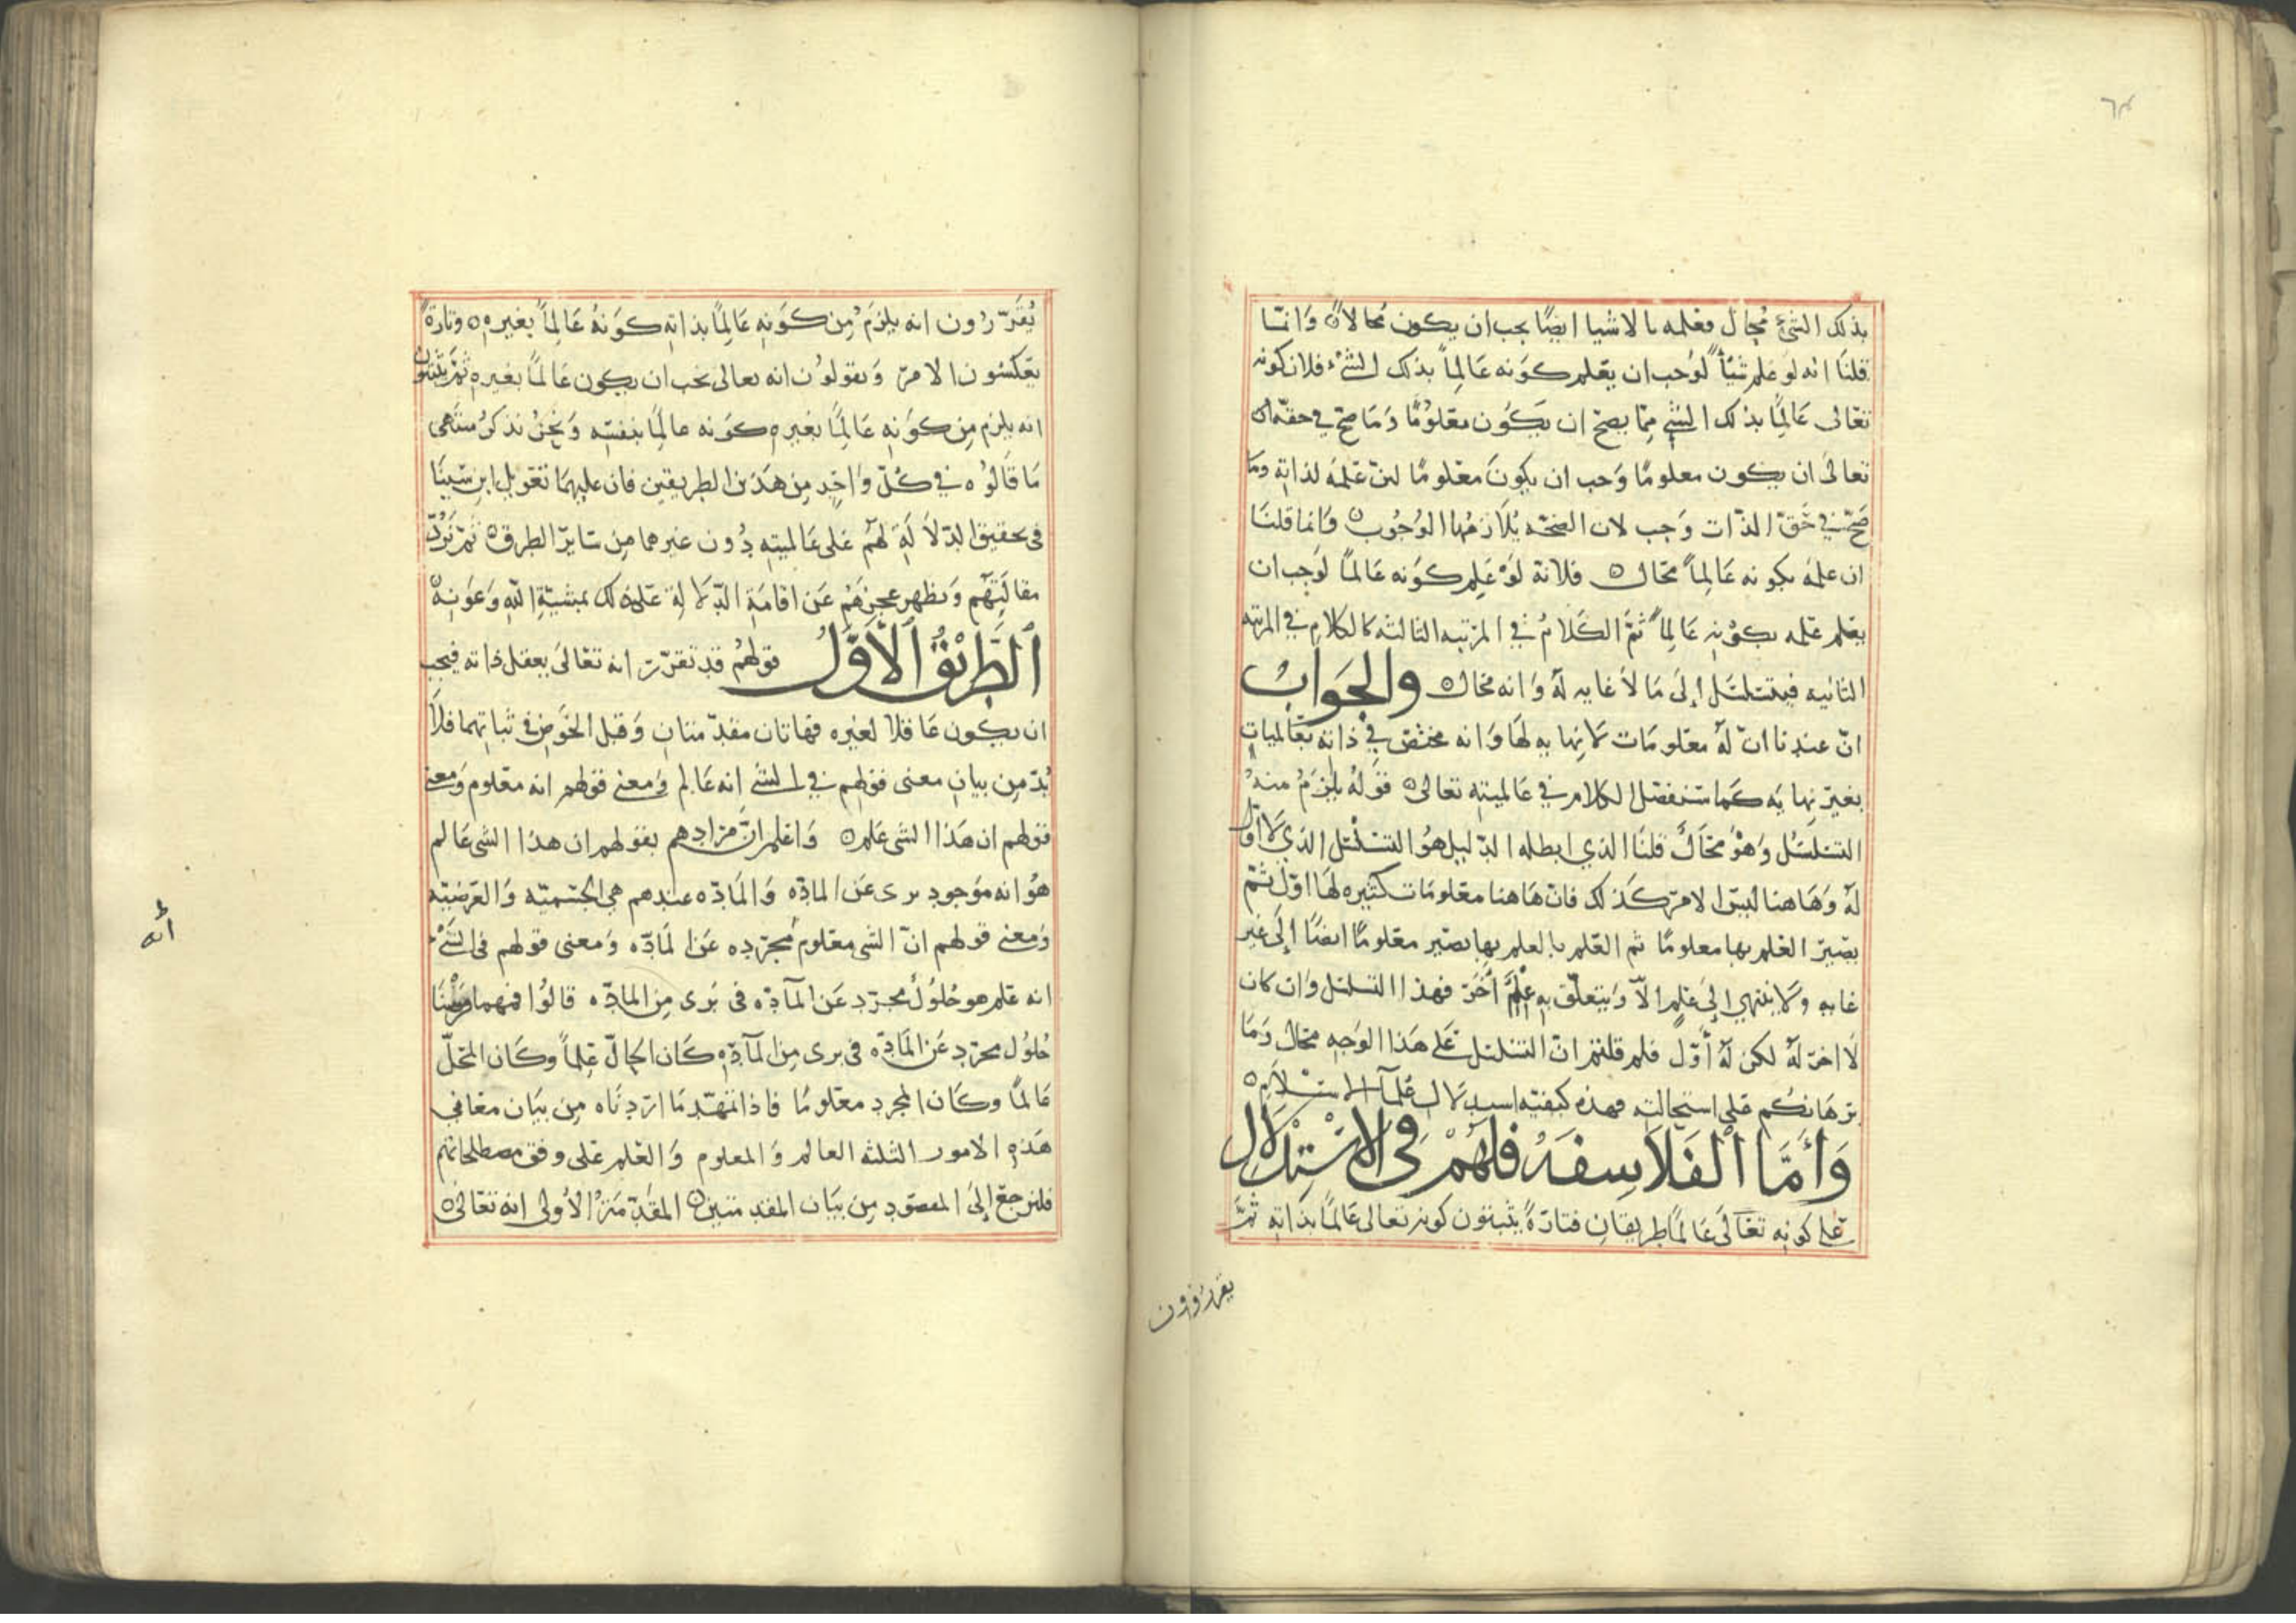 ٦٣
بذلك الشئ محال فعلمه بالاشيا ايضًا يجب ان يكون محالاً ٥ وَانمّا
قلنَا انه لوَ علم شيئاً لوَجب ان يعلم كوَنه عَالِماً بذلك الشئ فلان كونه
تعَالى عَالِمًا بذلك الشي ممّا يصحّ ان يكَون معلوُمًا وَمَا صحّ في حقه
تعالىَ ان يكون معلومًا وَجب ان يكونَ معلومًا لان علمَه لذاته وما
صَحّ في حَقّ الذّات وَجب لان الصّحّه يُلازمُها الوُجُوب ٥ وَانما قلنَا
ان علمَه بكونه عَالِماً محَال ٥ فلانه لوَ عَلِم كوَنه عَالماً لوَجب ان
يعلم علمه بكوَنه عَالِماً ثمَّ الكَلامُ في المرَتبه الثالثه كالكلامِ في المرتبه
الثانيه فيتسَلسَل إلىَ مَا لاَ غايه لهَ وَانه محَال ٥ والجَوَابُ
انّ عندنا انّ لهَ معَلومَات لا نهايه لهَا وَانه مختصّ في ذاته بعَالمياتٍ
بغيَر نهايَه كمَا سَنفصّل الكلام في عَالميتهِ تعَالى ٥ قوَلهُ يلزمُ منهُ
التسَلسُل وَهوُ محَالٌ قلنَا الذي ابطله الدّليل هوُ التسَلسُل الذي لاَ اوّل
لهَ وَهَاهنا ليسَ الامرَ كذَلك فانّ هَاهنا معَلومَات كثيره لهَا اوّل ثمّ
يصَير العلم بها معلومًا ثم العَلم بالعلم بها يصَير معَلومًا ايضًا إلىَ غير
غايه وَلا ينتهي إلىَ علمٍ إلاّ وَيتعلّق به عِلمٌ أخَر فهذا التسَلسُل وَان كان
لاَ اخرَ لهَ لكن لهَ أوّل فلم قلتم انّ التسَلسل عَلى هَذا الوَجه محَال وَمَا
برَهَانكُم عَلى استحَالته فهذه كيفيّه استدلال عُلمآ الاسَلامِ ٥
وَأَمَّا الْفَلاَسِفَهُ فلَهُمْ فِي الاسْتِدْلاَلِ
عَلى كونه تعَالىَ عَالمًا طريقانِ فتارَةً يثبتون كونه تعالى عَالماً بذاته ثمّ
يقررون
يُقرَّرُون انه يلزمَ مِن كوَنه عَالِمًا بذاته كوَنهُ عَالِماً بغيره ٥ وتارَةً
يَعكسُون الامرَ وَيقولوُن انه تعالى يجب ان يكون عَالمًا بغيره ثمّ يثبتون
انه يلزم مِن كوَنه عَالِمًا بغيره كوَنه عالمًا بنفسه وَنحَنُ نذكرُ منتهَى
مَا قالوُه في كلّ وَاحدٍ مِن هَذين الطريقين فان عليهمَا تعَويل ابن سَينَا
في تحقيق الدّلاَلة لهَم عَلى عَالميته دُون غيرهما مِن سَايرَ الطرق ٥ ثمّ نَرُدّ
مقالتهَم وَنظهر عجزهَم عَن اقامَة الدّلالة عَلى ذلك بمشيّة الله وَعَونه ٥
الطَّرِيْقُ الْأَوَّلُ قولهُم قد تقرّر انه تعَالىَ يعقل ذاته فيجب
ان يكون عَاقلا لغيره فهاتان مقدّمتان وَقبل الخَوض في ثباتهما فلاَ
بُدّ مِن بيانِ معنى قولهم في الشئ إنه عَالم وَمعنى قولهم انه معَلوم وَمعنى
قولهم ان هَذا الشي عَلم ٥ وَاعَلم انّ مرَادهم بقولهم ان هذا الشي عَالم
هوُ انه موَجود برى عَن المادّه وَالمَادّه عندهم هي الجسميّه وَالعَرضيّه
وَمعنى قولهم انّ الشي معَلوم مُجرّده عَن المَادّه وَمعنى قولهم في الشئ
انه عَلم هو حُلوُل مجرّد عَن المآدّه في بَرى مِن المادّه قالوُا فمهما فرضنَا
حُلول مجرّد عَن المَادّه في برى مِن المآدّه كَان الحالّ عِلماً وكَان المحَلّ
عَالمًا وكَان المجرد معَلومًا فاذا تمهّد مَا ارَدنَاه مِن بيَان معَاني
هَذه الامور الثلثه العالم وَالمعلوم وَالعَلم عَلى وفق مصطلحاتهم
فلنرجع إلىَ المقصَود مِن بيَان المقدمتين ٥ المقَدّمَةُ الأولى انه تعَالى ٥
أنه